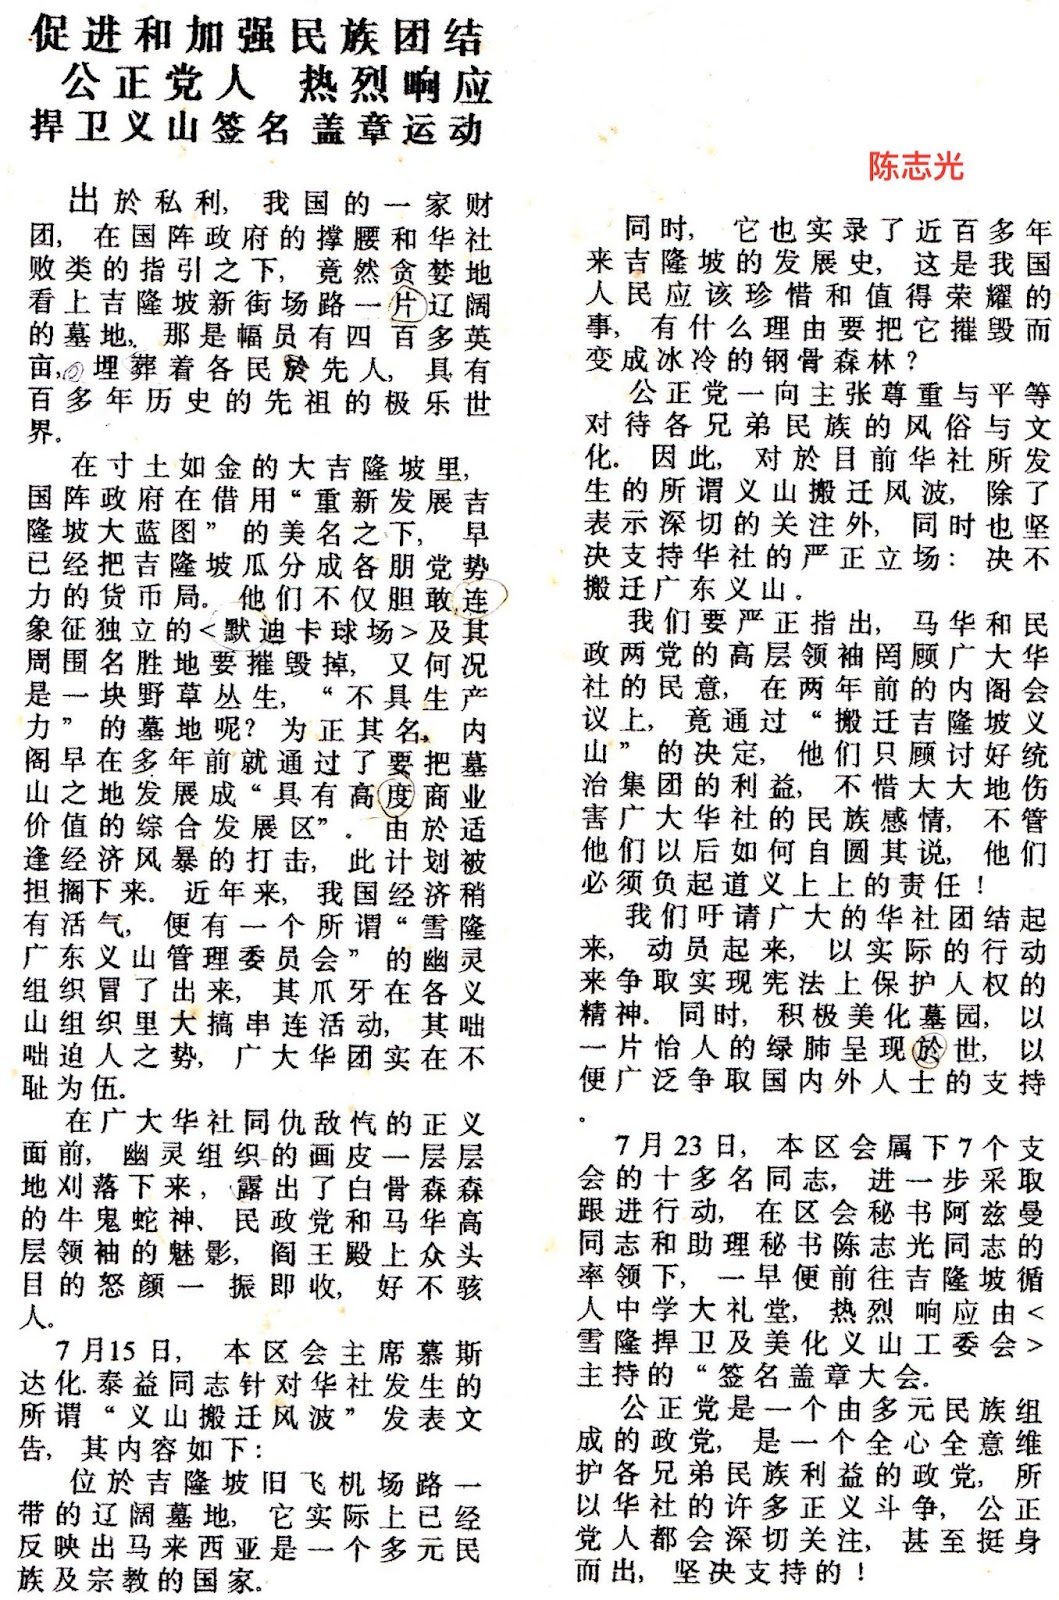 促进和加强民族团结
公正党人 热烈响应
捍卫义山签名盖章运动
出於私利, 我国的一家财
团, 在国阵政府的撑腰和华社
败类的指引之下, 竟然贪婪地
看上吉隆坡新街场路一片辽阔
的墓地, 那是幅员有四百多英
亩, 埋葬着各民於先人, 具有
百多年历史的先祖的极乐世
界.
在寸土如金的大吉隆坡里,
国阵政府在借用“重新发展吉
隆坡大蓝图”的美名之下, 早
已经把吉隆坡瓜分成各朋党势
力的货币局. 他们不仅胆敢连
象征独立的<默迪卡球场>及其
周围名胜地要摧毁掉, 又何况
是一块野草丛生, “不具生产
力”的墓地呢? 为正其名, 内
阁早在多年前就通过了要把墓
山之地发展成“具有高度商业
价值的综合发展区”. 由於适
逢经济风暴的打击, 此计划被
担搁下来. 近年来, 我国经济稍
有活气, 便有一个所谓“雪隆
广东义山管理委员会”的幽灵
组织冒了出来, 其爪牙在各义
山组织里大搞串连活动, 其咄
咄迫人之势, 广大华团实在不
耻为伍.
在广大华社同仇敌忾的正义
面前, 幽灵组织的画皮一层层
地刈落下来, 露出了白骨森森
的牛鬼蛇神、民政党和马华高
层领袖的魅影, 阎王殿上众头
目的怒颜一振即收, 好不骇
人.
7月15日, 本区会主席慕斯
达化.泰益同志针对华社发生的
所谓“义山搬迁风波”发表文
告, 其内容如下:
位於吉隆坡旧飞机场路一
带的辽阔墓地, 它实际上已经
反映出马来西亚是一个多元民
族及宗教的国家.
陈志光
同时, 它也实录了近百多年
来吉隆坡的发展史, 这是我国
人民应该珍惜和值得荣耀的
事, 有什么理由要把它摧毁而
变成冰冷的钢骨森林?
公正党一向主张尊重与平等
对待各兄弟民族的风俗与文
化. 因此, 对於目前华社所发
生的所谓义山搬迁风波, 除了
表示深切的关注外, 同时也坚
决支持华社的严正立场: 决不
搬迁广东义山.
我们要严正指出, 马华和民
政两党的高层领袖罔顾广大华
社的民意, 在两年前的内阁会
议上, 竟通过“搬迁吉隆坡义
山”的决定, 他们只顾讨好统
治集团的利益, 不惜大大地伤
害广大华社的民族感情, 不管
他们以后如何自圆其说, 他们
必须负起道义上上的责任!
我们吁请广大的华社团结起
来, 动员起来, 以实际的行动
来争取实现宪法上保护人权的
精神. 同时, 积极美化墓园, 以
一片怡人的绿肺呈现於世, 以
便广泛争取国内外人士的支持
.
7月23日, 本区会属下7个支
会的十多名同志, 进一步采取
跟进行动, 在区会秘书阿兹曼
同志和助理秘书陈志光同志的
率领下, 一早便前往吉隆坡循
人中学大礼堂, 热烈响应由<
雪隆捍卫及美化义山工委会>
主持的“签名盖章大会.
公正党是一个由多元民族组
成的政党, 是一个全心全意维
护各兄弟民族利益的政党, 所
以华社的许多正义斗争, 公正
党人都会深切关注, 甚至挺身
而出, 坚决支持的!